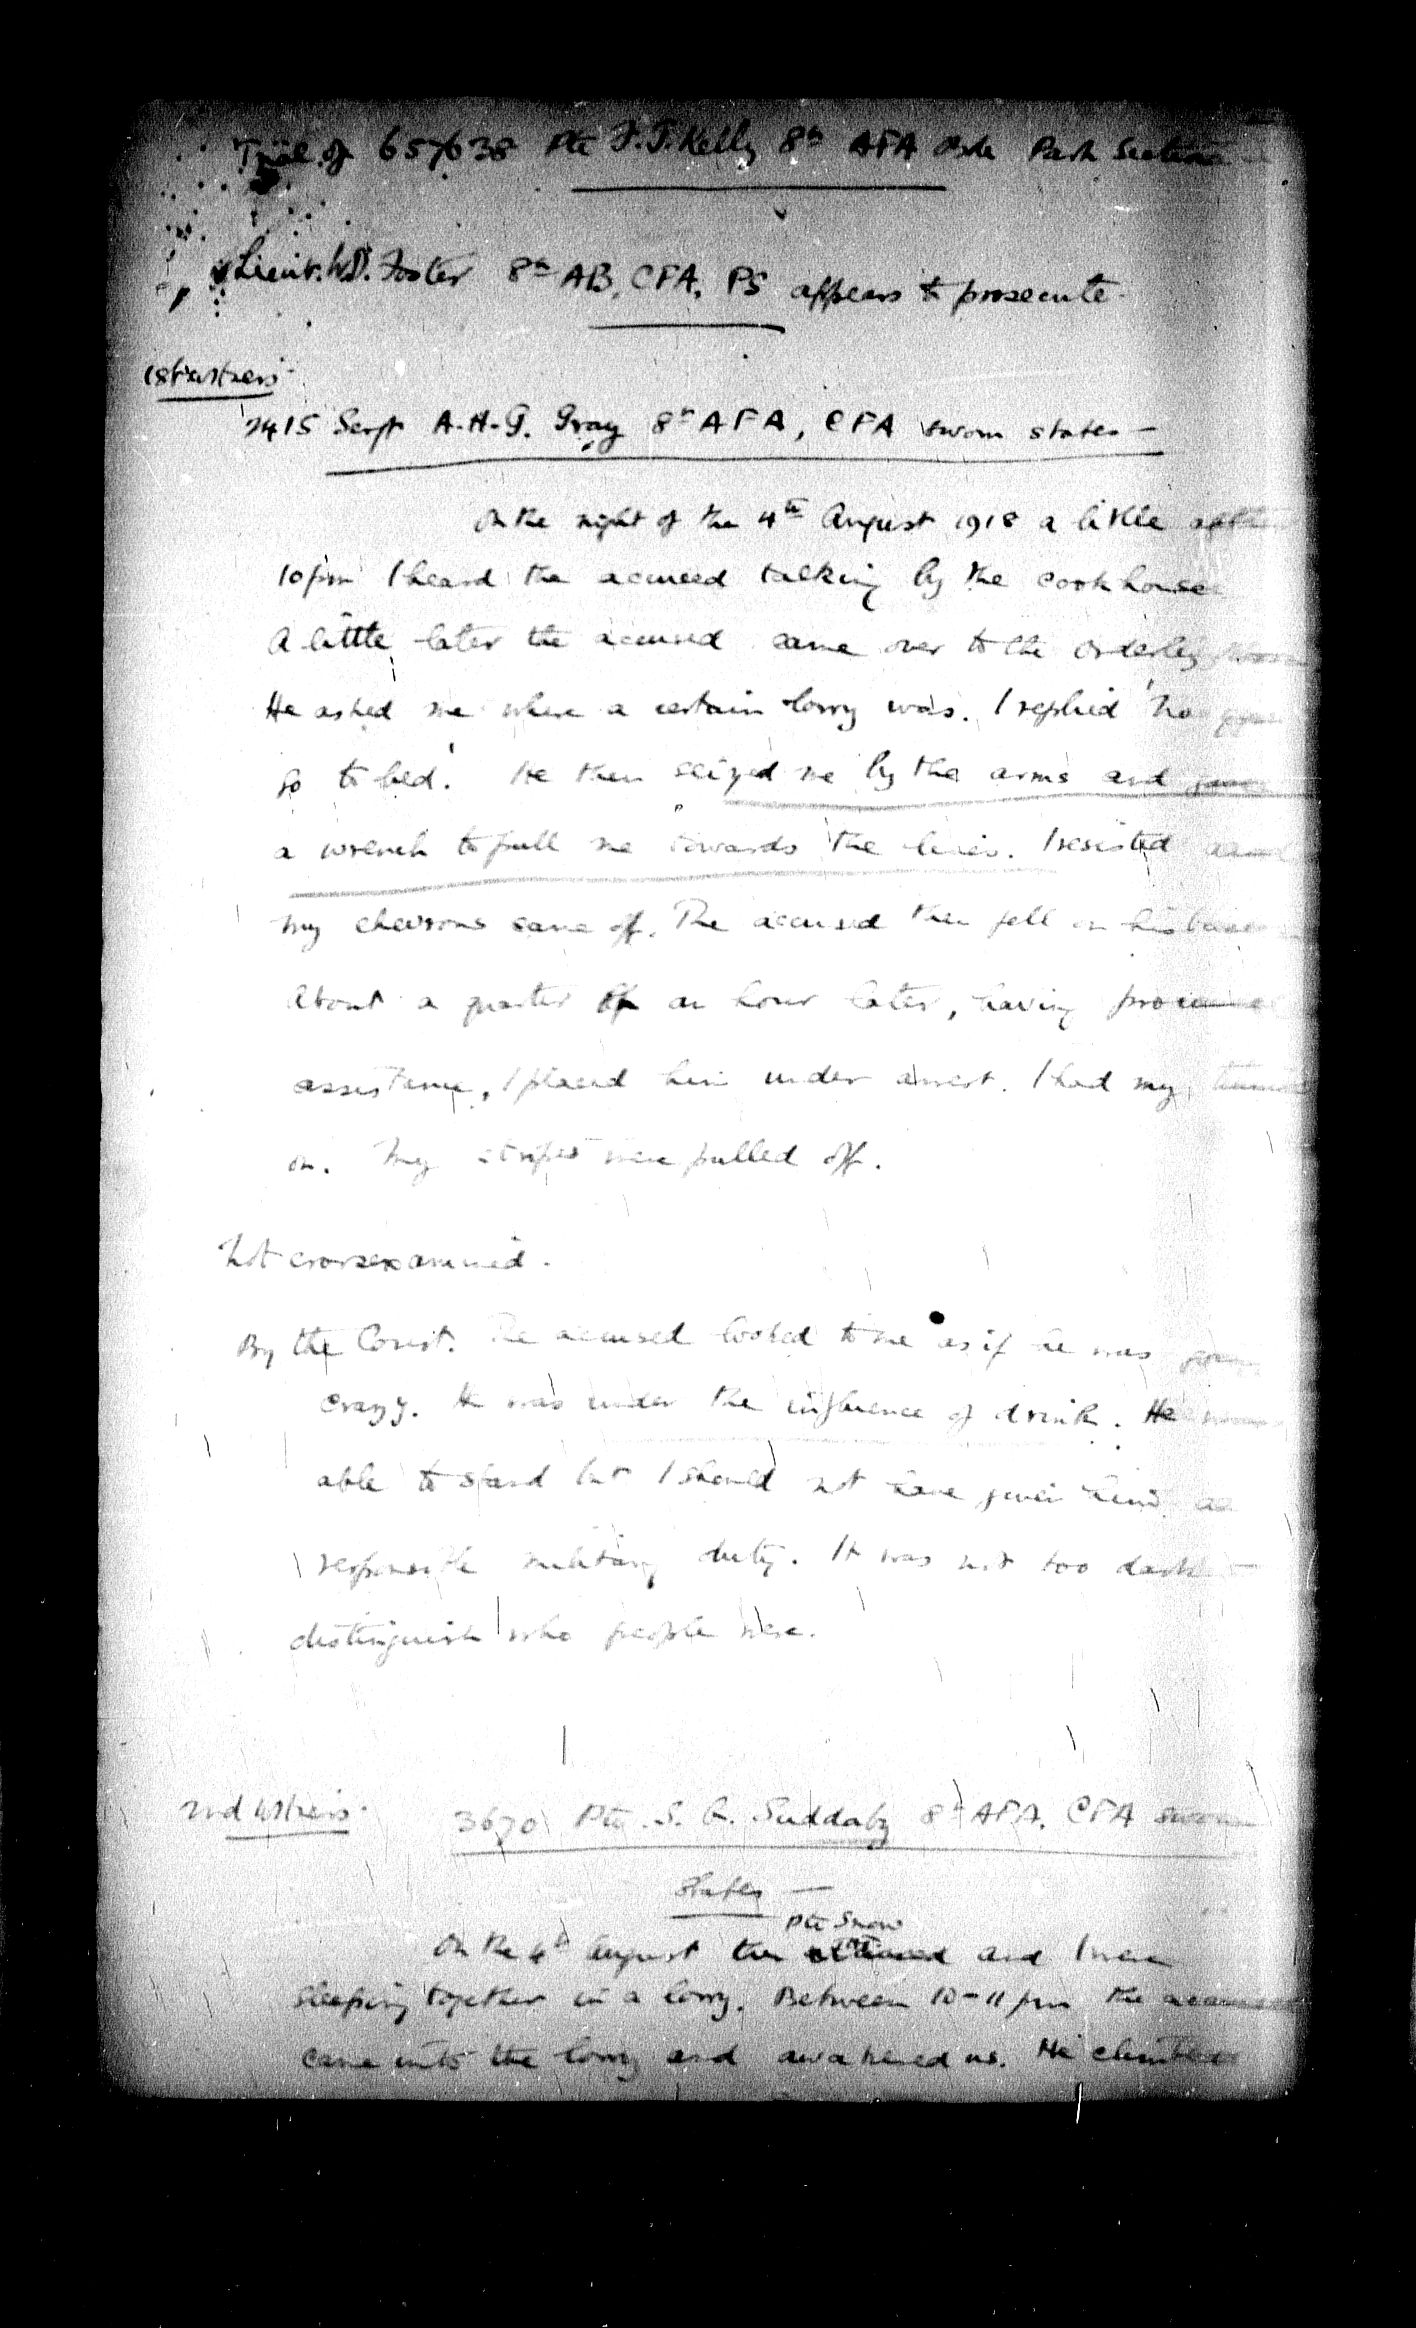 Trial of 657638 Pte F. J. Kelly 8th AFA Bde Park Section
Lieut. W.D. Foster 8th AB, CFA, PS appears to prosecute
1st witness
2415 Sergt A.H.G. Gray 8th AFA, CFA sworn states —
On the night of the 4th August 1918 a little after
10 pm I heard the accused talking by the cookhouse
A little later the accused came over to the Orderly Room
He asked me where a certain lorry was. I replied 'No
go to bed.' He then seized me by the arms and gave
a wrench to pull me towards the lines. I resisted and
my chevrons came off. The accused then fell on his
About a quarter of an hour later, having procured
assistance, I placed him under arrest. I had my tunic
on. My stripes were pulled off.
Not crossexamined.
By the Court. The accused looked to me as if he was going
crazy. He was under the influence of drink. He was
able to stand but I should not have given him a
responsible military duty. It was not too dark to
distinguish who people were.
2nd Witness.
3670 Pte. S. G. Suddaby 8th AFA. CFA sworn
states —
Pte Snow
On the 4th August the and I were
sleeping together in a lorry. Between 10-11 pm the accused
came into the lorry and awakened us. He climbed